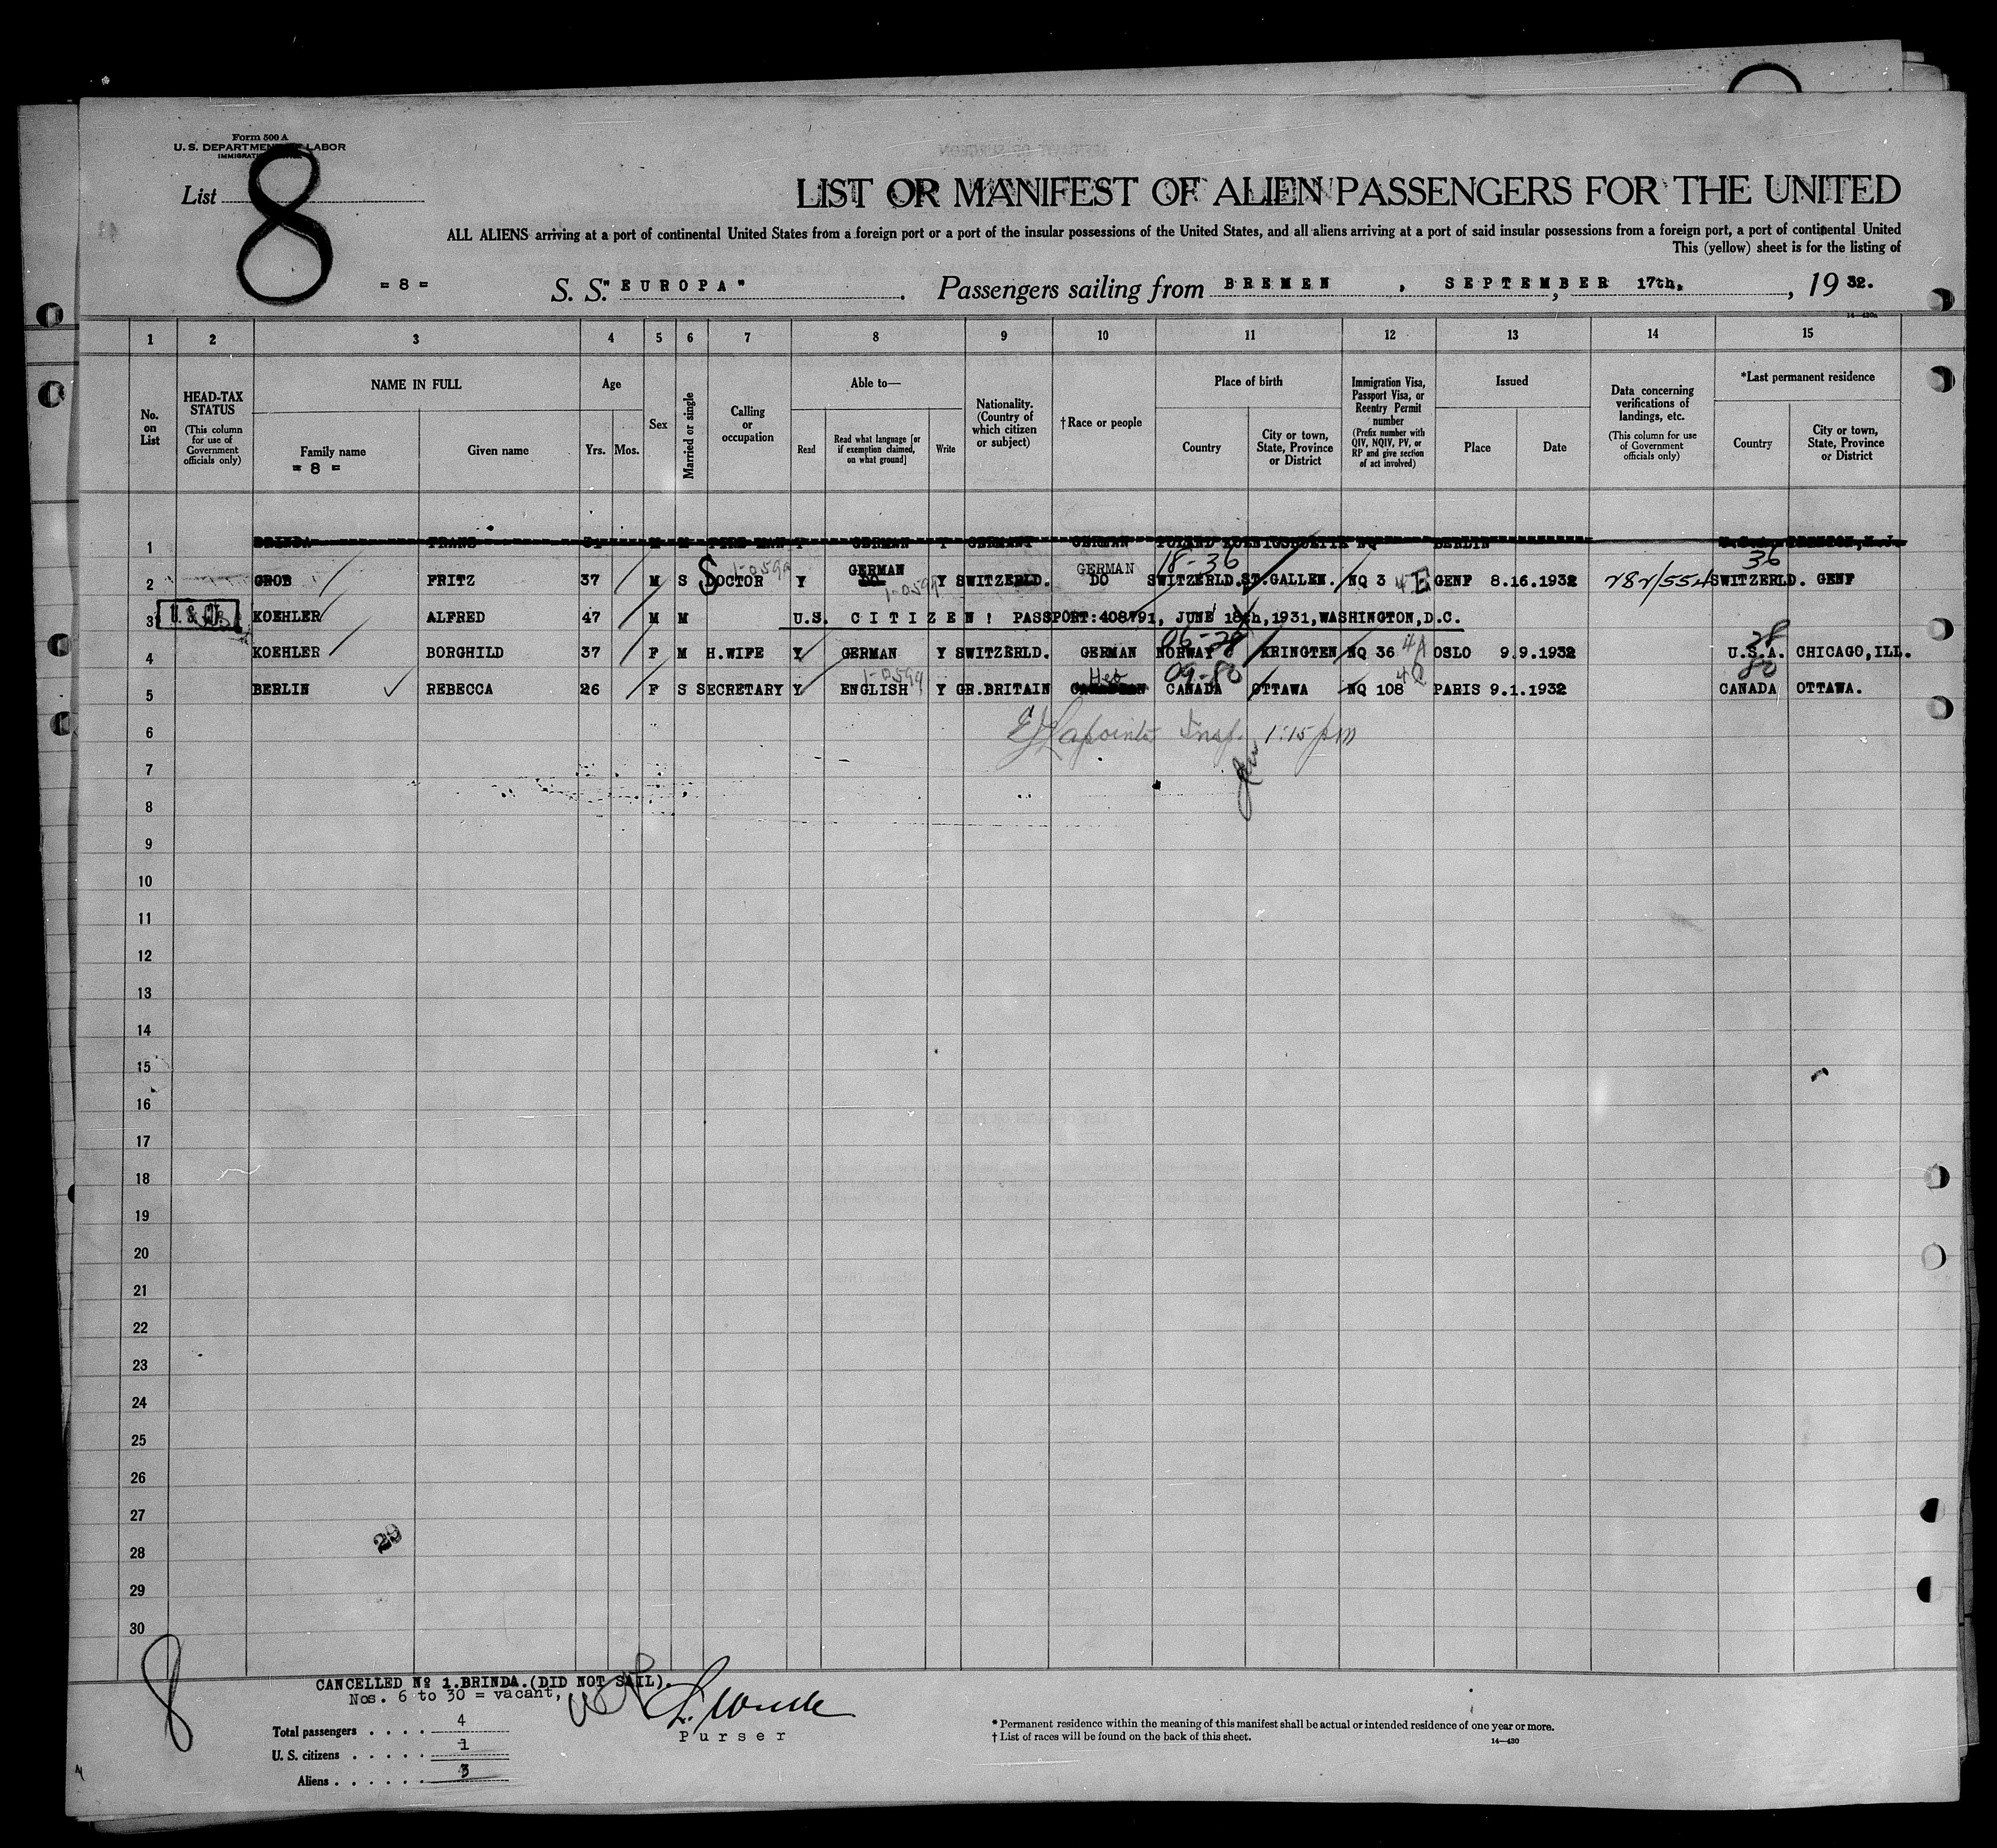 Form 500 A
U. S. DEPARTMENT OF LABOR
List 8
LIST OR MANIFEST OF ALIEN PASSENGERS FOR THE UNITED
ALL ALIENS arriving at a port of continental United States from a foreign port or a port of the insular possessions of the United States, and all aliens arriving at a port of said insular possessions from a foreign port, a port of continental United
This (yellow) sheet is for the listing of
= 8 = S. S. "EUROPA" . Passengers sailing from BREMEN , SEPTEMBER 17th, , 19 32.
14—430a
1 2 3 4 5 6 7 8 9 10 11 12 13 14 15
No. on List
HEAD-TAX STATUS (This column for use of Government officials only)
NAME IN FULL
Family name
= 8 =
Given name
Age
Yrs. Mos.
Sex
Married or single
Calling or occupation
Able to—
Read
Read what language [or if exemption claimed, on what ground]
Write
Nationality. (Country of which citizen or subject)
†Race or people
Place of birth
Country
City or town, State, Province or District
Immigration Visa, Passport Visa, or Reentry Permit number (Prefix number with QIV, NQIV, PV, or RP and give section of act involved)
Issued
Place
Date
Data concerning verifications of landings, etc. (This column for use of Government officials only)
*Last permanent residence
Country
City or town, State, Province or District
1 BRINDA FRANS 31 M M FIRE MAN Y GERMAN Y GERMANY GERMAN POLAND KOENIGSHUETTE NQ BERLIN
1-0599 GERMAN GERMAN 18-36 36
2 GROB FRITZ 37 M S DOCTOR Y DO 1-0599 Y SWITZERLD. DO SWITZERLD. ST.GALLEN. NQ 3 4E GENF 8.16.1932 282/554 SWITZERLD. GENF
3 U.S. KOEHLER ALFRED 47 M M U.S. CITIZEN! PASSPORT:408791, JUNE 18th,1931,WASHINGTON,D.C.
06-28 28
4 KOEHLER BORGHILD 37 F M H.WIFE Y GERMAN Y SWITZERLD. GERMAN NORWAY KRINGTEN NQ 36 4A OSLO 9.9.1932 U.S.A. CHICAGO,ILL.
1-0599 Heb 09-80 80
5 BERLIN REBECCA 26 F S SECRETARY Y ENGLISH Y GR.BRITAIN CANADA OTTAWA NQ 108 PARIS 9.1.1932 CANADA OTTAWA.
6 EJLapointe Insp. 1:15 pm
7
8
9
10
11
12
13
14
15
16
17
18
19
20
21
22
23
24
25
26
27
28 29
29
30
8
CANCELLED Nº 1.BRINDA.(DID NOT SAIL).
Nos. 6 to 30 = vacant,
Purser
Total passengers . . . . 4
U. S. citizens . . . . . 1
Aliens . . . . . . 3
* Permanent residence within the meaning of this manifest shall be actual or intended residence of one year or more.
† List of races will be found on the back of this sheet.
14—430